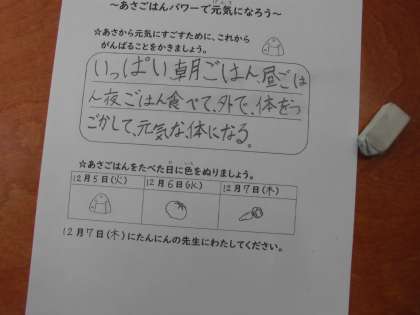 ～あさごはんパワーで元気になろう～
☆あさから元気にすごすために、これから
がんばることをかきましょう。
いっぱい朝ごはん昼ごは
ん夜ごはん食べて、外で、体をう
ごかして、元気な、体になる。
☆あさごはんをたべた日に色をぬりましょう。
12月5日(火) 12月6日(水) 12月7日(木)
12月7日(木)にたんにんの先生にわたしてください。